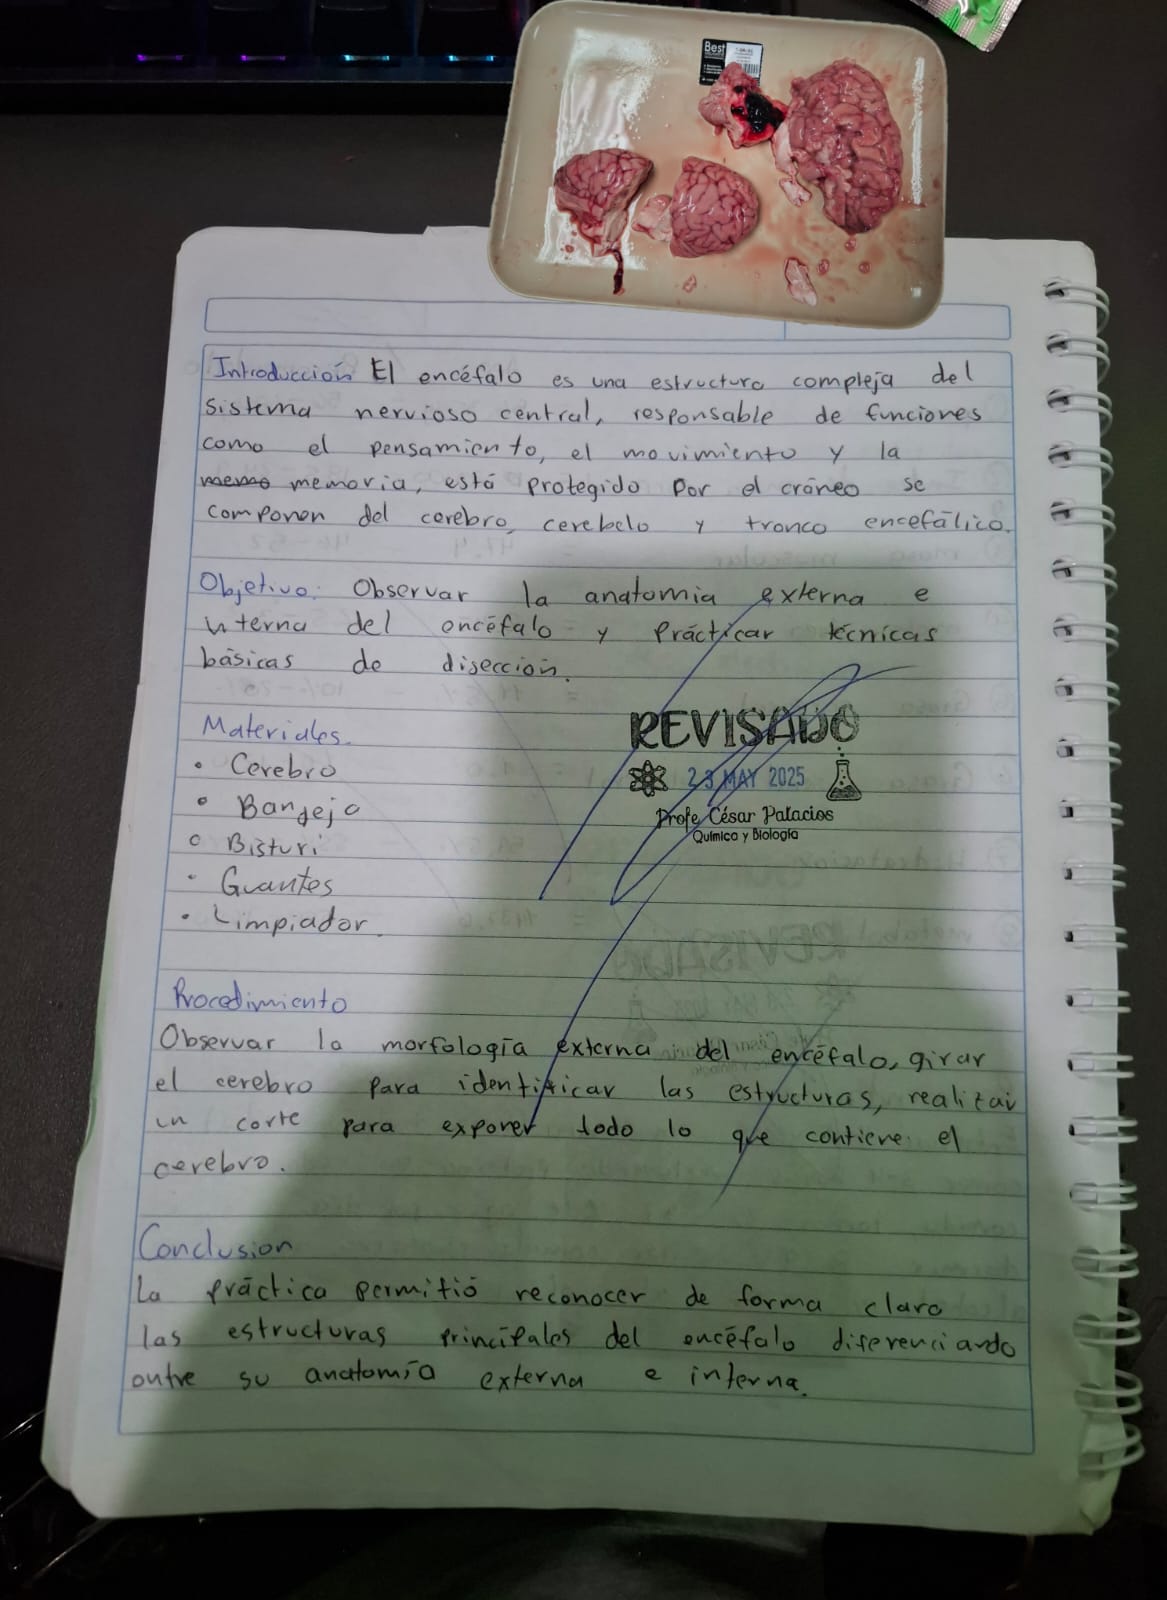 Best
Introducción El encéfalo es una estructura compleja del
sistema nervioso central, responsable de funciones
como el pensamiento, el movimiento y la
memo memoria, está protegido por el cráneo se
componen del cerebro, cerebelo y tronco encefálico.
Objetivo: Observar la anatomia externa e
interna del encéfalo y prácticar técnicas
básicas de disección.
Materiales.
• Cerebro
• Bandeja
• Bisturi
• Guantes
• Limpiador.
REVISADO
23 MAY 2025
Profe César Palacios
Química y Biología
Procedimiento
Observar la morfología externa del encéfalo, girar
el cerebro para identificar las estructuras, realizar
un corte para exponer todo lo que contiene el
cerebro.
Conclusion
La práctica permitió reconocer de forma clara
las estructuras principales del encéfalo diferenciando
entre su anatomía externa e interna.